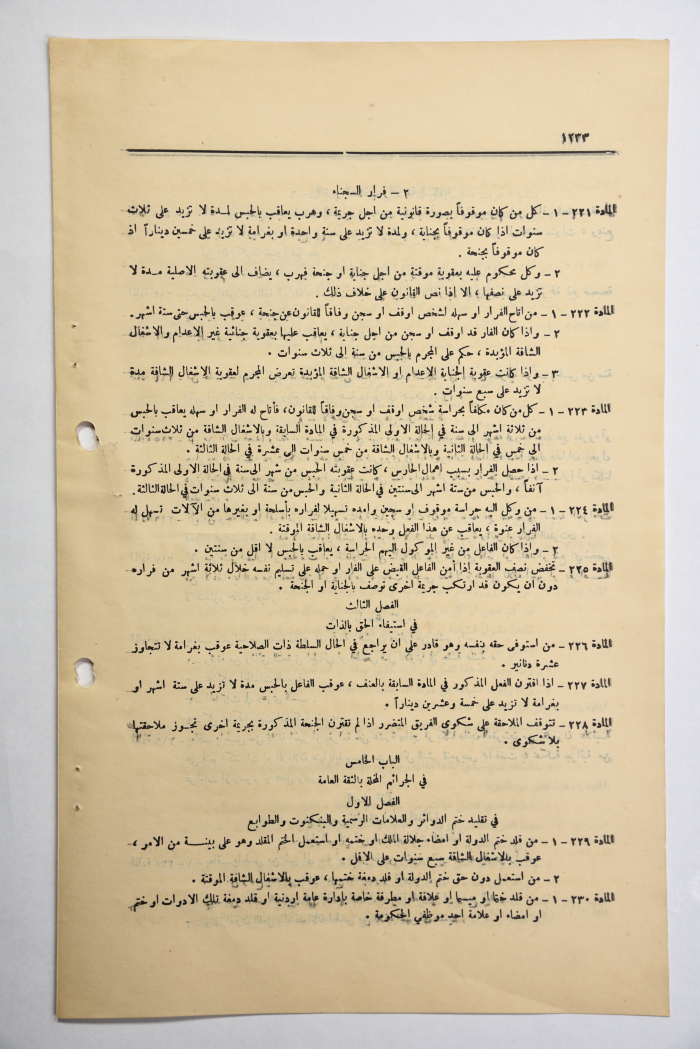 ١٢٣٣
٢ - فرار السجناء
المادة ٢٢١ - ١ - كل من كان موقوفاً بصورة قانونية من اجل جريمة ، وهرب يعاقب بالحبس لمدة لا تزيد على ثلاث
سنوات اذا كان موقوفاً بجناية ، ولمدة لا تزيد على سنة واحدة او بغرامة لا تزيد على خمسين ديناراً اذا
كان موقوفاً بجنحة .
٢ - وكل محكوم عليه بعقوبة موقتة من اجل جناية او جنحة فهرب ، يضاف الى عقوبته الاصلية مدة لا
تزيد على نصفها ، الا اذا نص القانون على خلاف ذلك .
المادة ٢٢٢ - ١ - من اتاح الفرار او سهله لشخص اوقف او سجن وفاقاً للقانون عن جنحة ، عوقب بالحبس حتى ستة اشهر .
٢ - واذا كان الفار قد اوقف او سجن من اجل جناية ، يعاقب عليها بعقوبة جنائية غير الاعدام والاشغال
الشاقة المؤبدة ، حكم على المجرم بالحبس من سنة الى ثلاث سنوات .
٣ - واذا كانت عقوبة الجناية الاعدام او الاشغال الشاقة المؤبدة تعرض المجرم لعقوبة الاشغال الشاقة مدة
لا تزيد على سبع سنوات .
المادة ٢٢٣ - ١ - كل من كان مكلفاً بحراسة شخص اوقف او سجن وفاقاً للقانون ، فأتاح له الفرار او سهله يعاقب بالحبس
من ثلاثة اشهر الى سنة في الحالة الاولى المذكورة في المادة السابقة وبالاشغال الشاقة من ثلاث سنوات
الى خمس في الحالة الثانية وبالاشغال الشاقة من خمس سنوات الى عشرة في الحالة الثالثة .
٢ - اذا حصل الفرار بسبب اهمال الحارس ، كانت عقوبته الحبس من شهر الى سنة في الحالة الاولى المذكورة
آنفاً ، والحبس من ستة اشهر الى سنتين في الحالة الثانية والحبس من سنة الى ثلاث سنوات في الحالة الثالثة .
المادة ٢٢٤ - ١ - من وكل اليه حراسة موقوف او سجين وامده تسهيلا لفراره بأسلحة او بغيرها من الآلات تسهل له
الفرار عنوة ، يعاقب عن هذا الفعل وحده بالاشغال الشاقة الموقتة .
٢ - واذا كان الفاعل من غير الموكول اليهم الحراسة ، يعاقب بالحبس لا اقل من سنتين .
المادة ٢٢٥ - تخفض نصف العقوبة إذا أمن الفاعل القبض على الفار او حمله على تسليم نفسه خلال ثلاثة اشهر من فراره
دون ان يكون قد ارتكب جريمة اخرى توصف بالجناية او الجنحة .
الفصل الثالث
في استيفاء الحق بالذات
المادة ٢٢٦ - من استوفى حقه بنفسه وهو قادر على ان يراجع في الحال السلطة ذات الصلاحية عوقب بغرامة لا تتجاوز
عشرة دنانير .
المادة ٢٢٧ - اذا اقترن الفعل المذكور في المادة السابقة بالعنف ، عوقب الفاعل بالحبس مدة لا تزيد على ستة اشهر او
بغرامة لا تزيد على خمسة وعشرين ديناراً .
المادة ٢٢٨ - تتوقف الملاحقة على شكوى الفريق المتضرر اذا لم تقترن الجنحة المذكورة بجريمة اخرى تجوز ملاحقتها
بلا شكوى .
الباب الخامس
في الجرائم المخلة بالثقة العامة
الفصل الاول
في تقليد ختم الدوائر والعلامات الرسمية والبنكنوت والطوابع
المادة ٢٢٩ - ١ - من قلد ختم الدولة او امضاء جلالة الملك او ختمه او استعمل الختم المقلد وهو على بينة من الامر ،
عوقب بالاشغال الشاقة سبع سنوات على الاقل .
٢ - من استعمل دون حق ختم الدولة او قلد دمغة ختمها ، عوقب بالاشغال الشاقة الموقتة .
المادة ٢٣٠ - ١ - من قلد ختما او ميسما او علاقة او مطرقة خاصة بإدارة عامة اردنية او قلد دمغة تلك الادوات او ختم
او امضاء او علامة احد موظفي الحكومة .